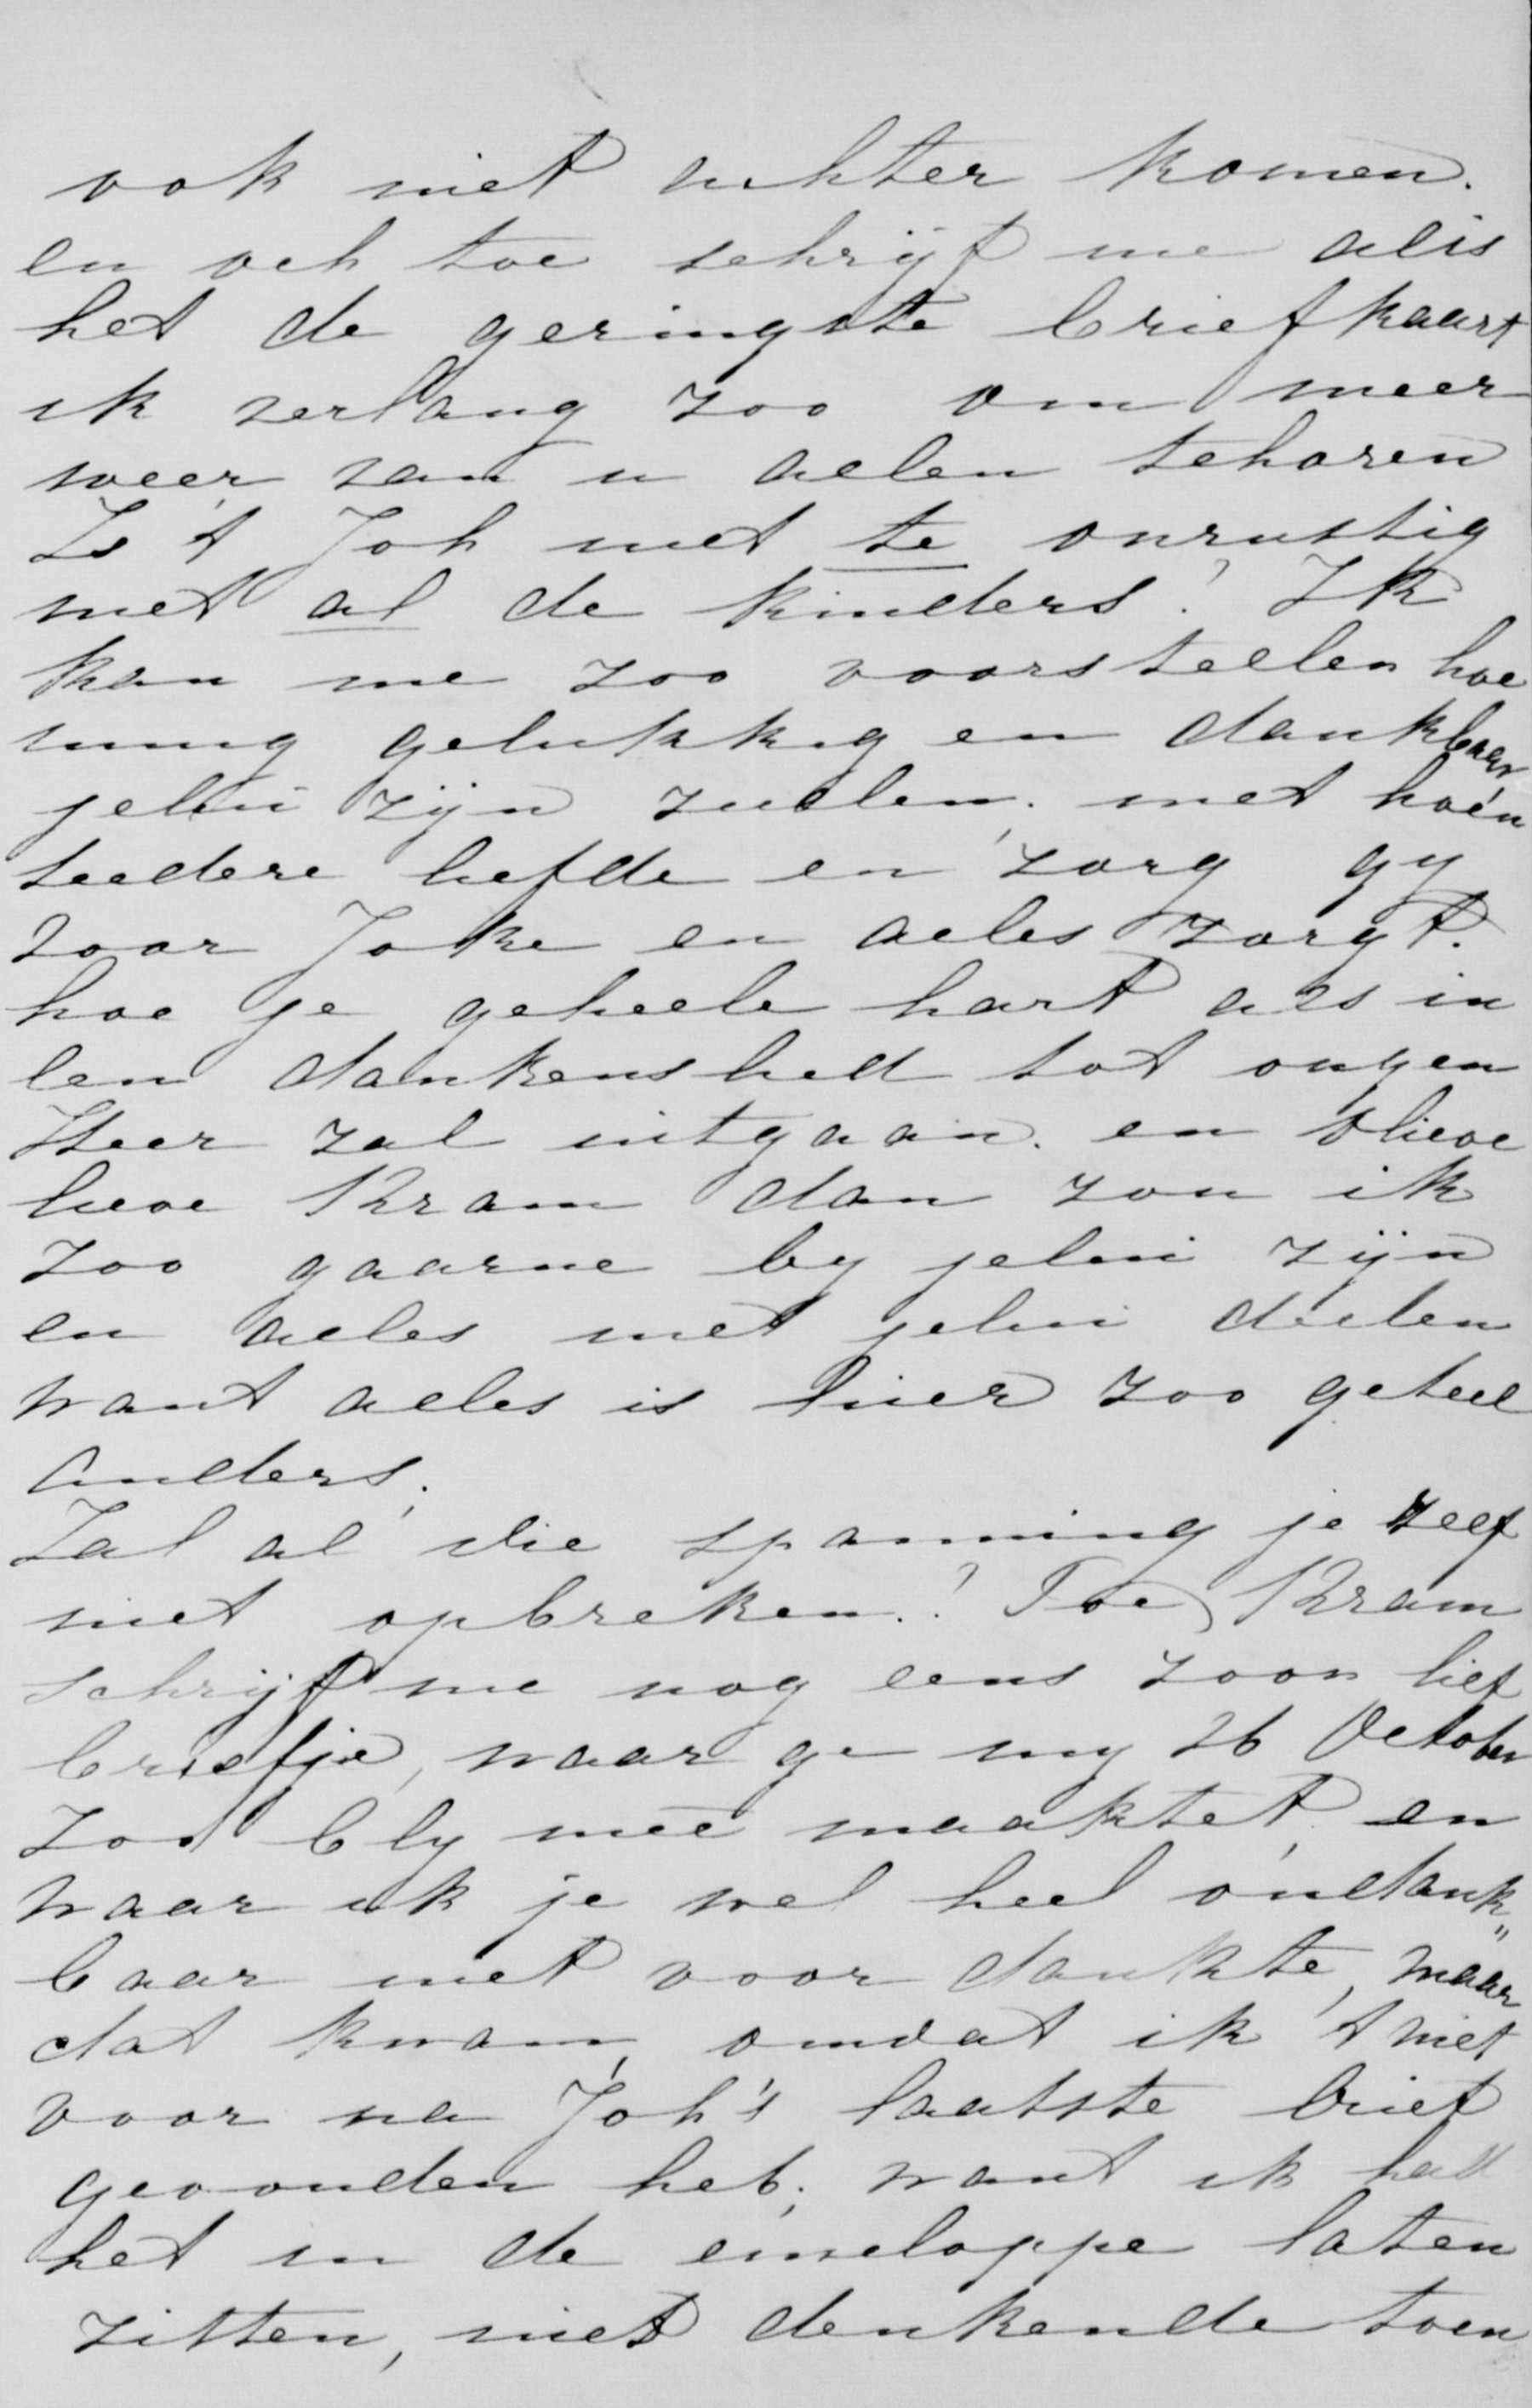 ook niet achter komen.
en och toe schrijf me al is
het de geringste briefkaart
ik verlang zoo om meer
weer van u allen te horen
Is 't Joh niet te onrustig
met al de kinders? Ik
kan me zoo voorstellen hoe
innig gelukkig en dankbaar
jelui zijn zullen. met hoe'n
teedere liefde en zorg gy
voor Joke en alles zorgt.
hoe je geheele hart als in
een dankenslied tot onzen
Heer zal uitgaan. en o lieve
lieve Kram dan zou ik
zoo gaarne by jelui zijn
en alles met jelui deelen
want alles is hier zoo geheel
anders.
Zal al die spanning je zelf
niet opbreken.? Toe Kram
schrijf me nog eens zoon lief
briefje, waar ge my 26 October
zoo bly meê maaktet en
waar ik je wel heel ondank"
baar niet voor dankte, maar
dat kwam, omdat ik 't niet
voor na Joh's laatste brief
gevonden heb; want ik had
het in de enveloppe laten
zitten, niet denkende toen